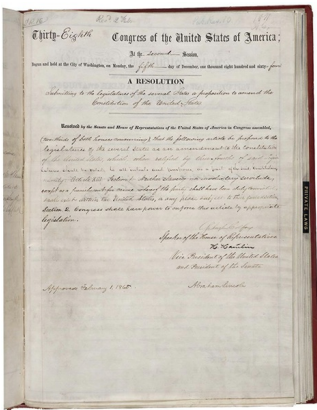 Thirty-Eighth Congress of the United States of America;
At the second Session,
Begun and held at the City of Washington, on Monday, the fifth day of December, one thousand eight hundred and sixty-four
A RESOLUTION
Submitting to the legislatures of the several States a proposition to amend the
Constitution of the United States.
Resolved by the Senate and House of Representatives of the United States of America in Congress assembled,
(two-thirds of both houses concurring), that the following article be proposed to the
legislatures of the several States as an amendment to the Constitution
of the United States, which, when ratified by three-fourths of said legis-
latures shall be valid, to all intents and purposes, as a part of the said Constitution,
namely: Article XIII. Section 1. Neither slavery nor involuntary servitude,
except as a punishment for crime whereof the party shall have been duly convicted,
shall exist within the United States, or any place subject to their jurisdiction.
Section 2. Congress shall have power to enforce this article by appropriate
legislation.
Speaker of the House of Representatives
H. Hamlin
Vice President of the United States
and President of the Senate
Approved February 1, 1865
Abraham Lincoln
PRIVATE LAWS